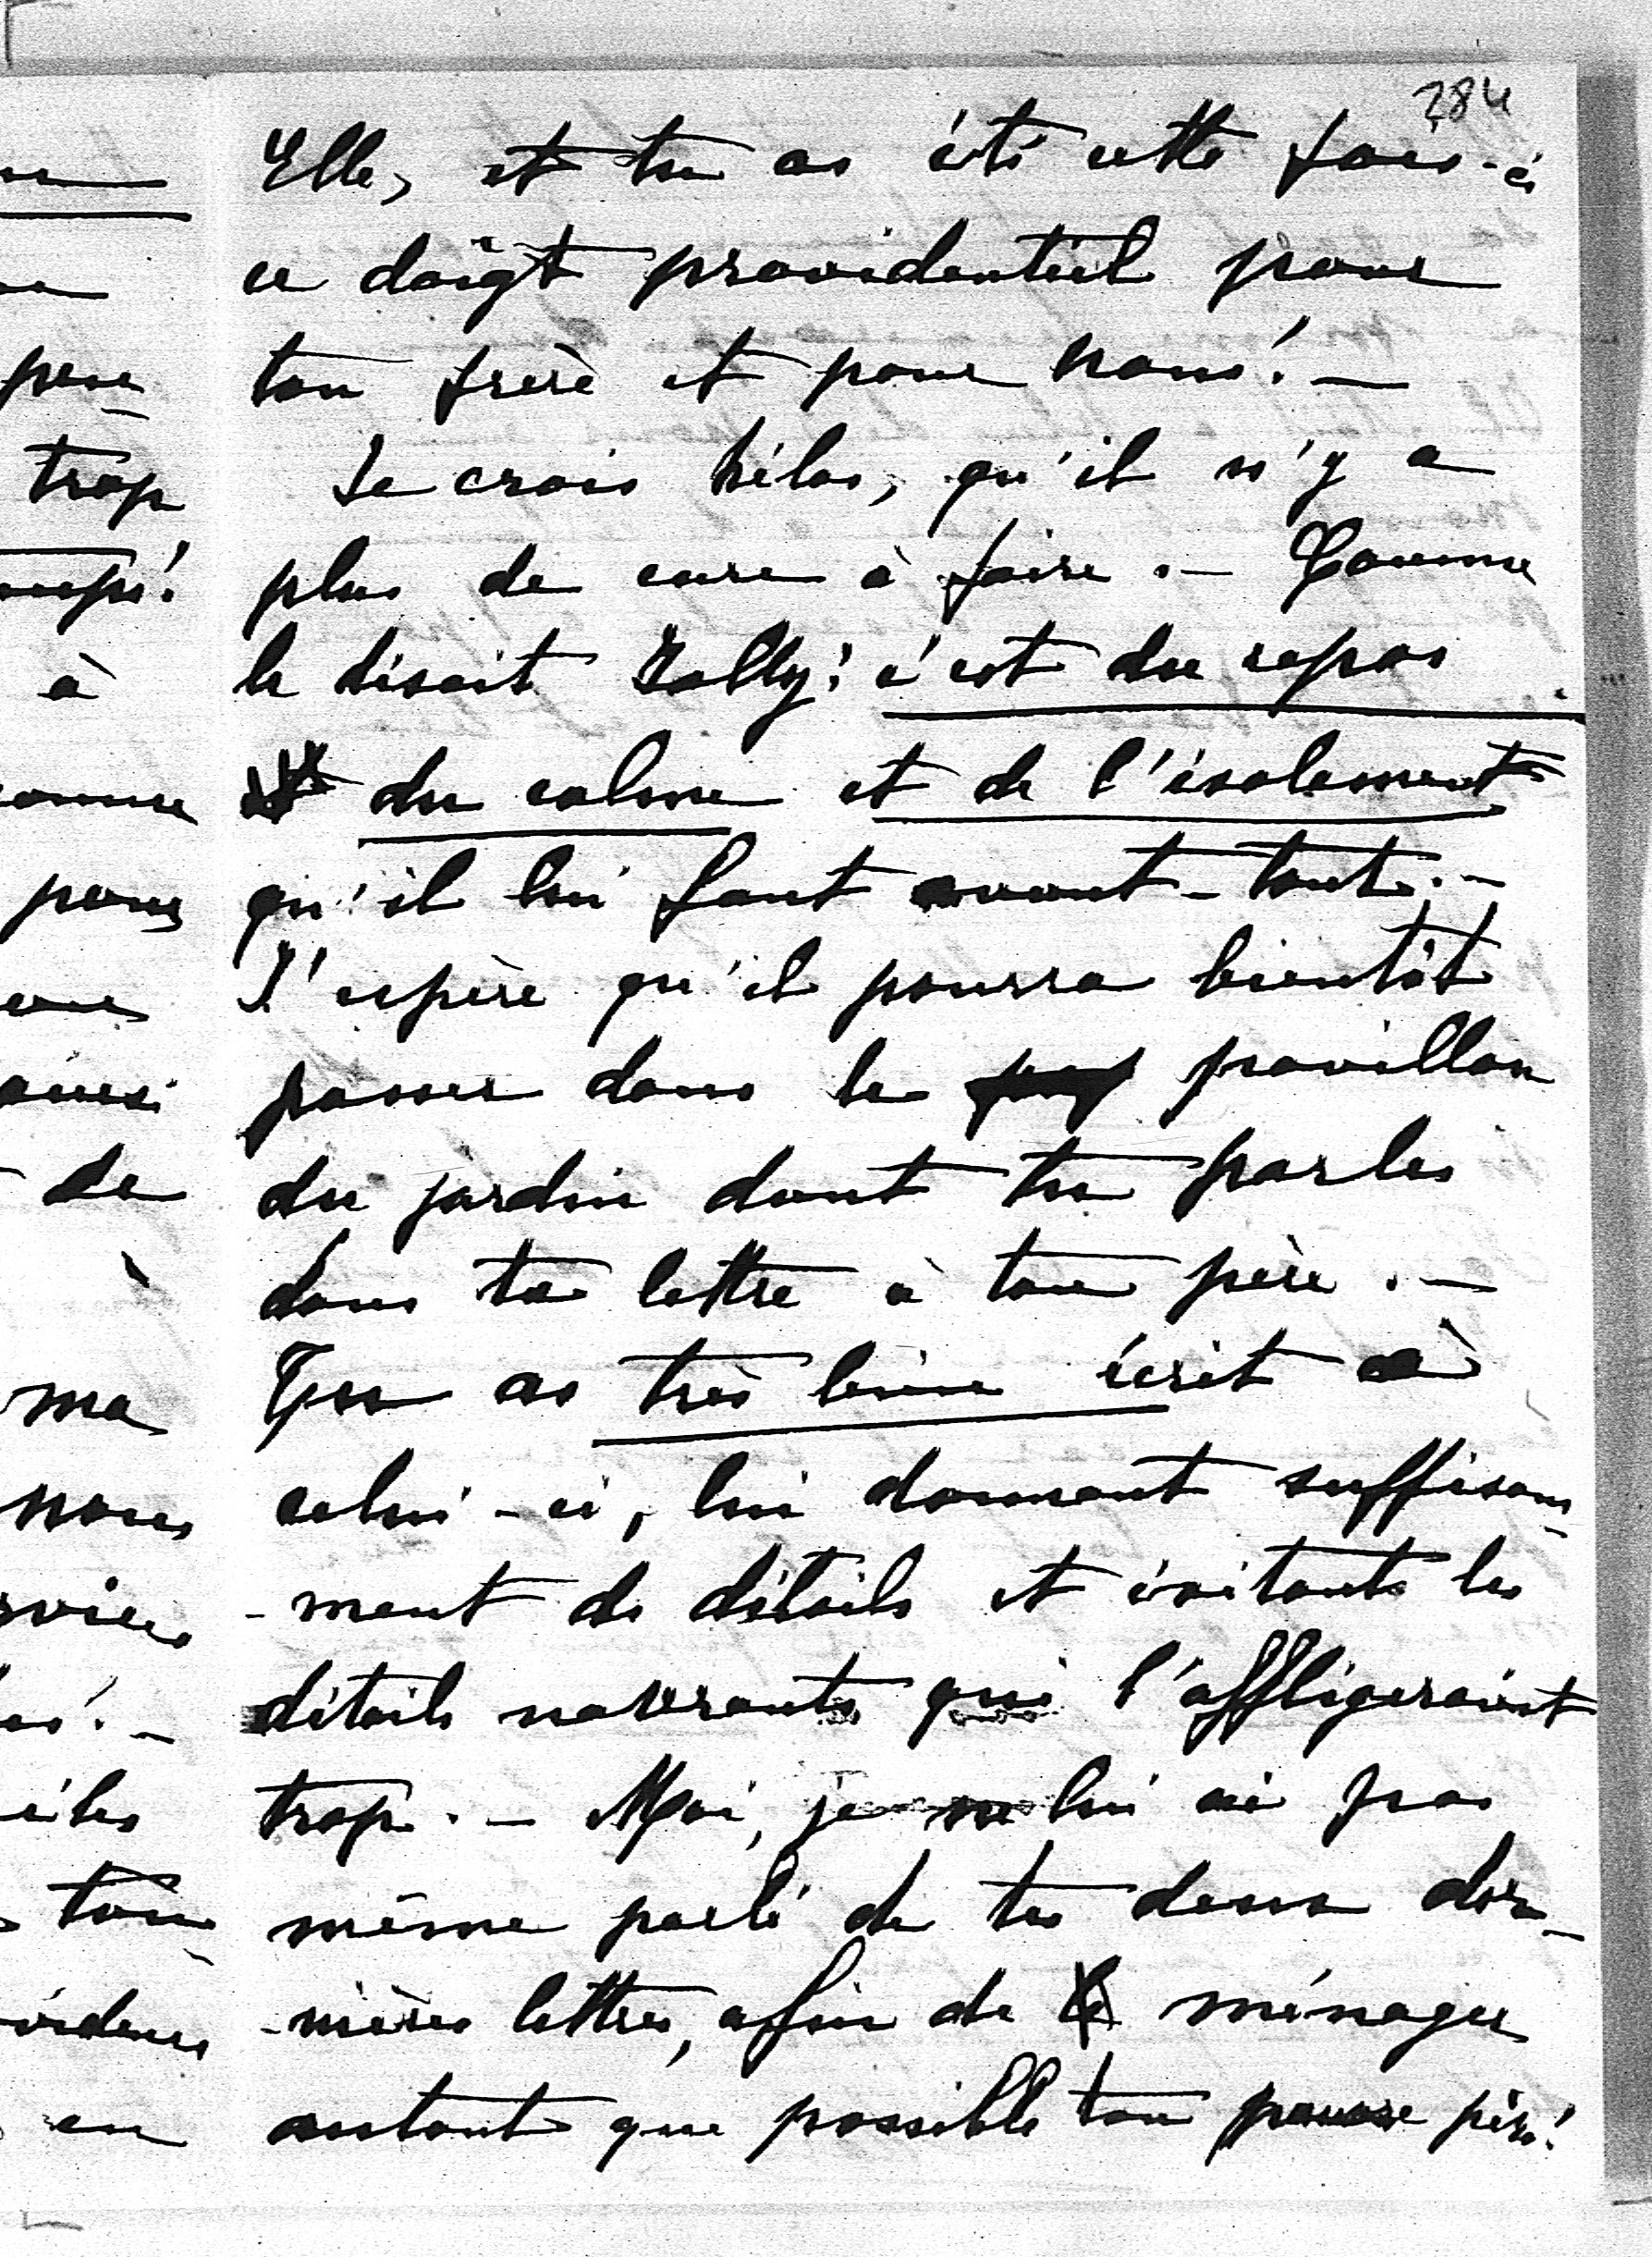 284
Elle, et tu as été cette fois-ci
ce doigt providentiel pour
ton frère et pour nous! —
Je crois hélas, qu'il n'y a
plus de cure à faire. — Comme
le disait Zolly: c'est du repos
du calme et de l'isolement
qu'il lui faut avant-tout. —
J'espère qu'il pourra bientôt
passer dans le pavillon
du jardin dont tu parles
dans ta lettre à ton père. —
Tu as très bien écrit à
celui-ci, lui donnant suffisam-
-ment de détails et évitant les
détails navrants qui l'affligeraient
trop. — Moi, je ne lui ai pas
même parlé de tes deux der-
-nières lettres, afin de ménager
autant que possible ton pauvre père!